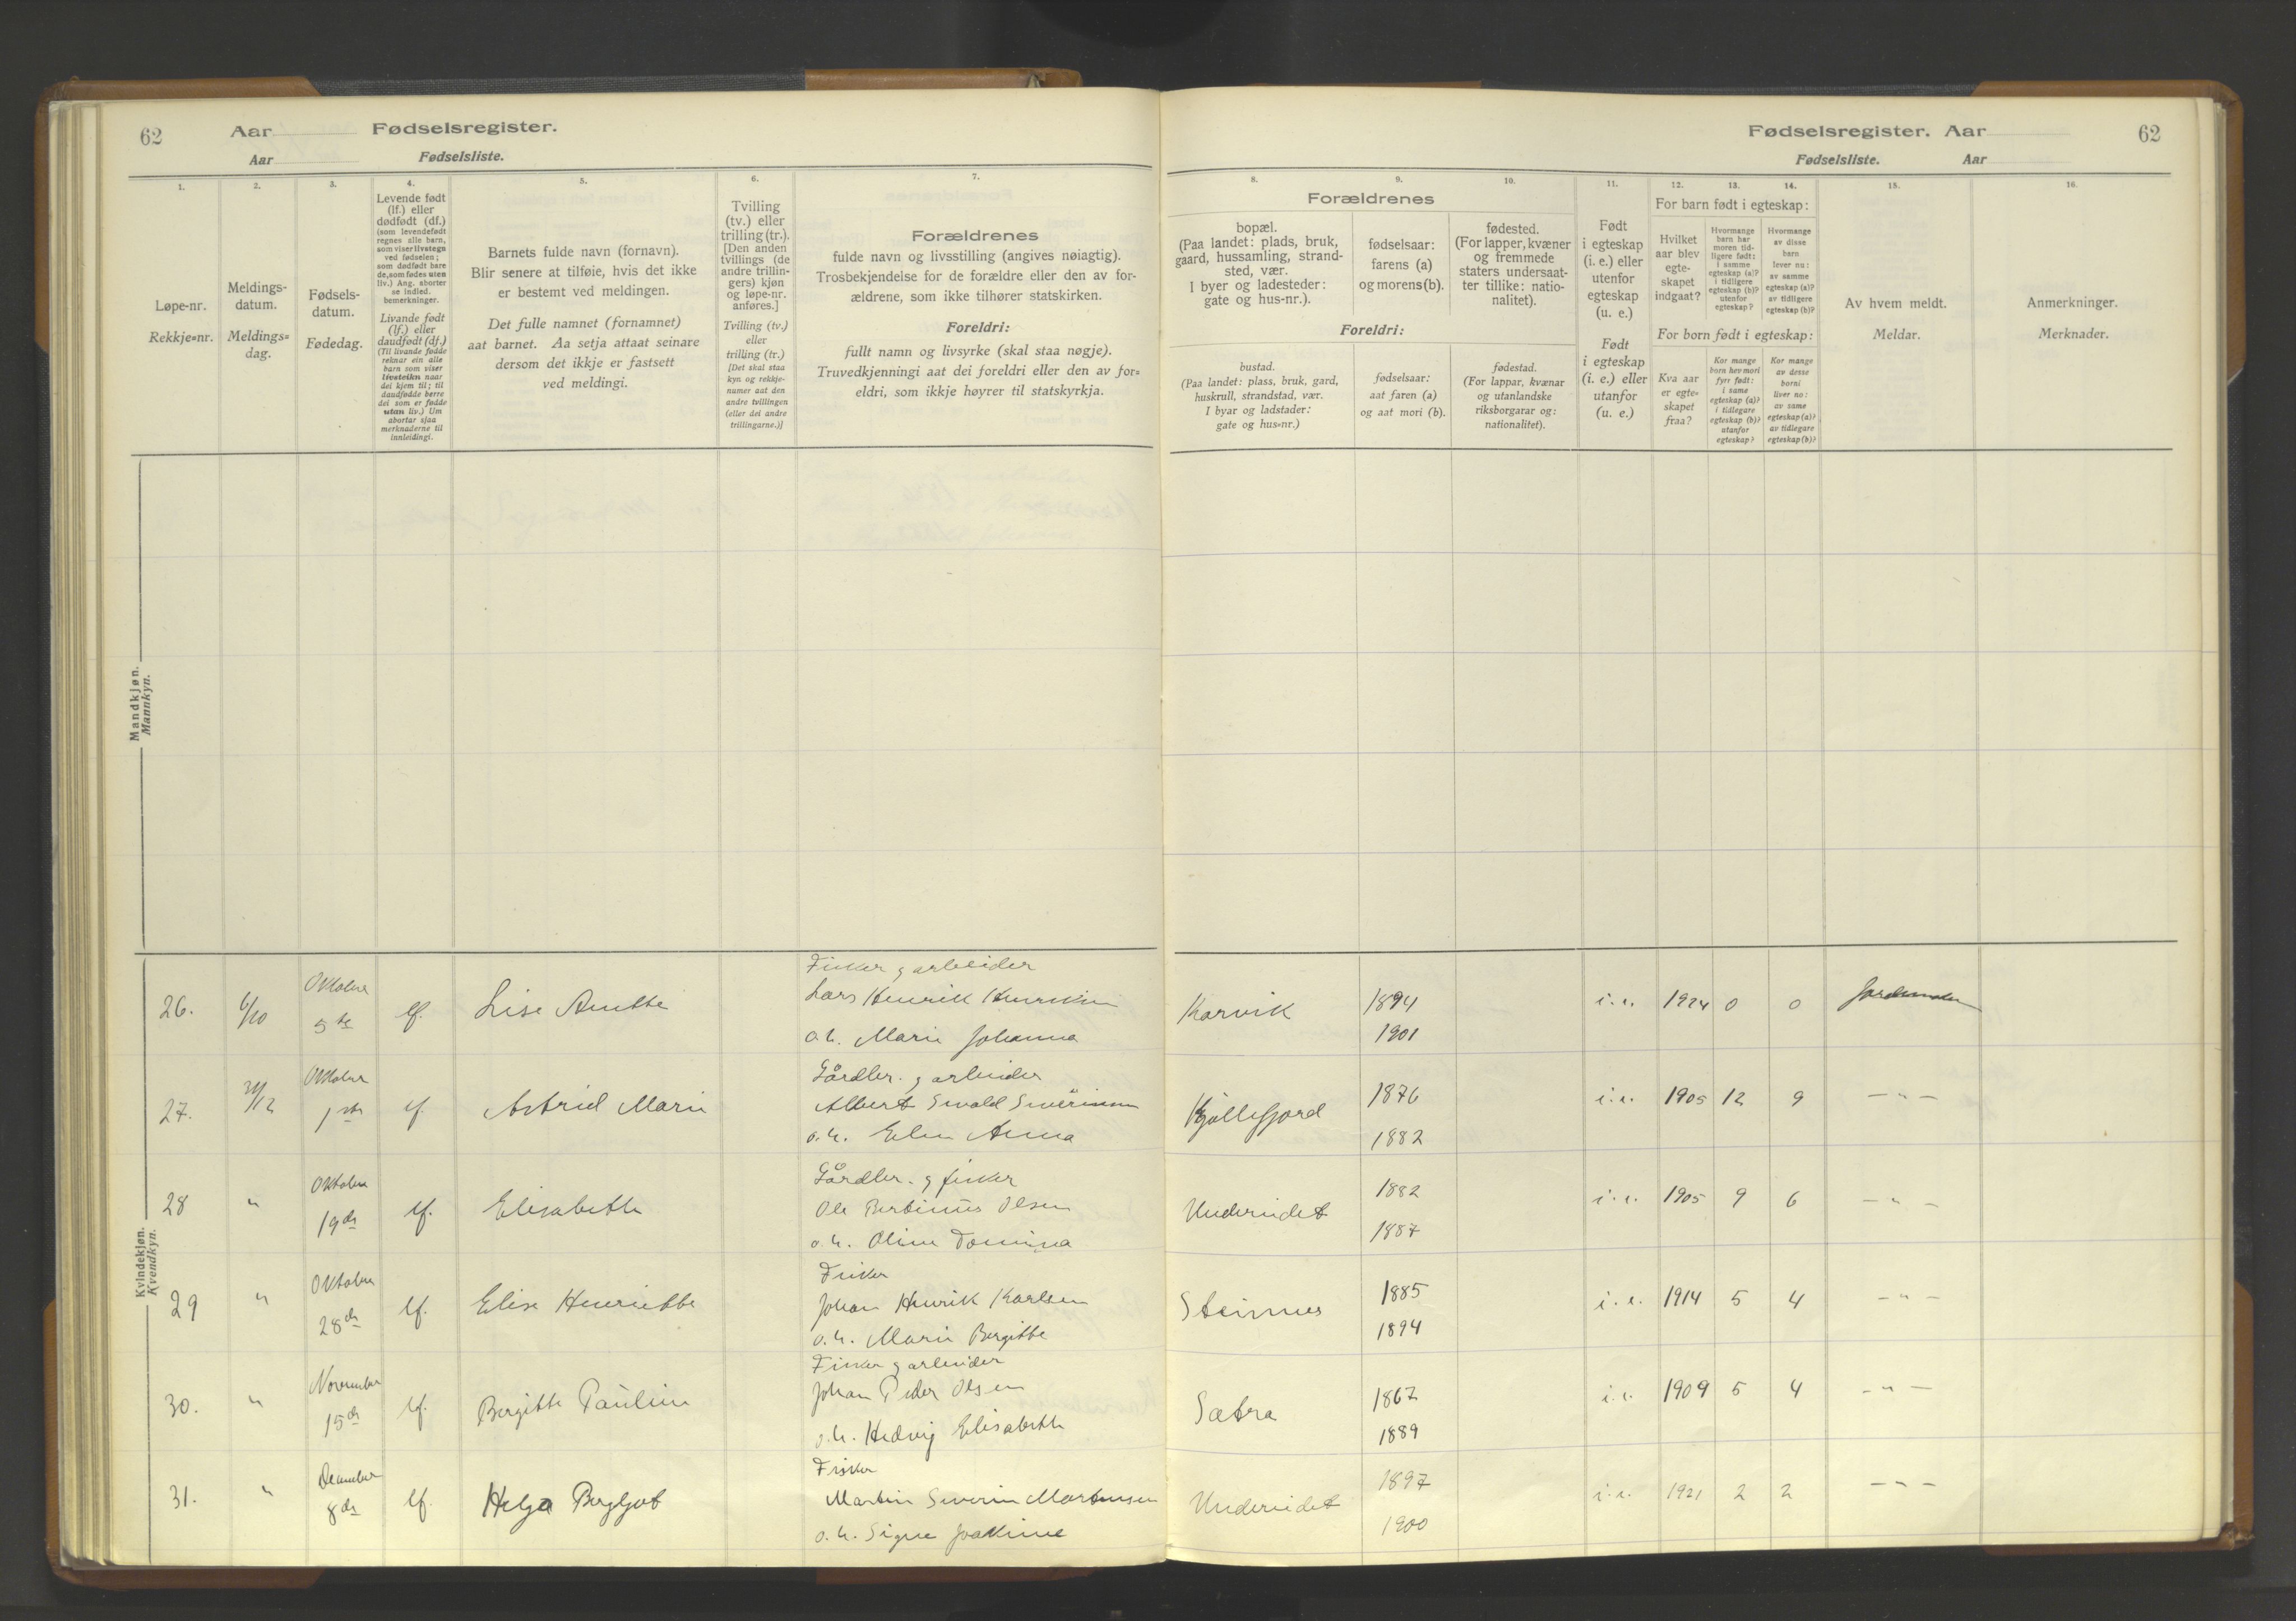 62
Aar
Fødselsregister.
Aar
Fødselsliste.
1.
Løpe-nr.
Rekkje=nr.
2.
Meldings-
datum.
Meldings=
dag.
3.
Fødsels-
datum.
Fødedag.
4.
Levende født
(lf.) eller
dødfødt (df.)
(som levendefødt
regnes alle barn,
som viser livstegn
ved fødselen;
som dødfødt bare
de, som fødes uten
liv.) Ang. aborter
se indled.
bemerkninger.
Livande født
(lf.) eller
daudfødt (df.)
(Til livande fødde
reknar ein alle
barn som viser
livsteikn naar
dei kjem til; til
daudfødde berre
dei som er fødde
utan liv.) Um
abortar sjaa
merknaderne til
innleidingi.
5.
Barnets fulde navn (fornavn).
Blir senere at tilføie, hvis det ikke
er bestemt ved meldingen.
Det fulle namnet (fornamnet)
aat barnet. Aa setja attaat seinare
dersom det ikkje er fastsett
ved meldingi.
6.
Tvilling
(tv.) eller
trilling (tr.).
[Den anden
tvillings (de
andre trillin-
gers) kjøn
og løpe-nr.
anføres.]
Tvilling (tv.)
eller
trilling (tr.)
[Det skal staa
kyn og rekkje-
numer aat den
andre tvillingen
(eller dei andre
trillingarne.)]
7.
Forældrenes
fulde navn og livsstilling (angives nøiagtig).
Trosbekjendelse for de forældre eller den av for-
ældrene, som ikke tilhører statskirken.
Foreldri:
fullt namn og livsyrke (skal staa nøgje).
Truvedkjenningi aat dei foreldri eller den av for=
eldri, som ikkje høyrer til statskyrkja.
Fødselsregister. Aar
62
Fødselsliste.
Aar
Forældrenes
8.
bopæl.
(Paa landet: plads, bruk,
gaard, hussamling, strand-
sted, vær.
I byer og ladesteder:
gate og hus-nr.).
9.
fødselsaar:
farens (a)
og morens (b).
10.
fødested.
(For lapper, kvæner
og fremmede
staters undersaat-
ter tillike: natio-
nalitet).
Foreldri:
bustad.
(Paa landet: plass, bruk, gard,
huskrull, strandstad, vær.
I byar og ladstader:
gate og hus=nr.)
fødselsaar:
aat faren (a)
og aat mori (b).
fødestad.
(For lappar, kvænar
og utanlandske
riksborgarar og:
nationalitet).
11.
Født
i egteskap
(i. e.) eller
utenfor
egteskap
(u. e.)
Født
i egteskap
(i. e.) eller
utanfor
(u. e.)
For barn født i egteskap:
12.
Hvilket
aar blev
egte-
skapet
indgaat?
13.
Hvormange
barn har
moren tid-
ligere født:
i samme
egteskap (a)?
i tidligere
egteskap (b)?
utenfor
egteskap?
14.
Hvormange
av disse
barn
lever nu:
av samme
egteskap (a)?
av tidligere
egteskap (b)?
For born født i egteskap:
Kva aar
er egte=
skapet
fraa?
Kor mange
born hev mori
fyrr født:
i same
egteskap (a)?
i tidlegare
egteskap (b)?
utanfor
egteskap?
Kor mange
av desse
borni
liver no:
av same
egteskap (a)?
av tidlegare
egteskap (b)?
15.
Av hvem meldt.
Meldar.
16.
Anmerkninger.
Merknader.
Mandkjøn.
Mannkyn.
Kvindekjøn.
Kvendkyn.
26. 6/10 Oktober 5te lf. Lise Anette
Fisker og arbeider
Lars Henrik Henriksen
o. h. Marie Johanna
Korvik 1894 1901 i. e. 1924 0 0 Jordemoder
27. 31/12 Oktober 1ste lf. Astrid Marie
Gårdbr. og arbeider
Albert Sevald Severinsen
o. h. Elen Anna
Kjøllefjord 1876 1882 i. e. 1905 12 9 — " —
28 " Oktober 19de lf. Elisabeth
Gårdbr. og fisker
Ole Bertinus Olsen
o. h. Oline
1882 1887 i. e. 1905 9 6 — " —
29 " Oktober 28de lf. Elise Henriette
Fisker
Johan Henrik Karlsen
o. h. Marie Bergitte
Steinnes 1885 1894 i. e. 1914 5 4 — " —
30. " November 15de lf. Bergitte Pauline
Fisker og arbeider
Johan Peder Olsen
o. h. Hedvig Elisabeth
Sætra 1867 1889 i. e. 1909 5 4 — " —
31. " December 8de lf. Helga Bergljot
Fisker
Martin Severin Mortensen
o. h. Signe Joakime
1897 1900 i. e. 1921 2 2 — " —